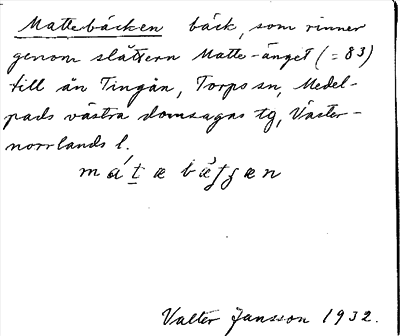 Mattebäcken bäck, som rinner
genom slåttern Matte-änget (=83)
till ån Tingån, Torps sn, Medel-
pads västra domsagas tg, Väster-
norrlands l.
Valter Jansson 1932.